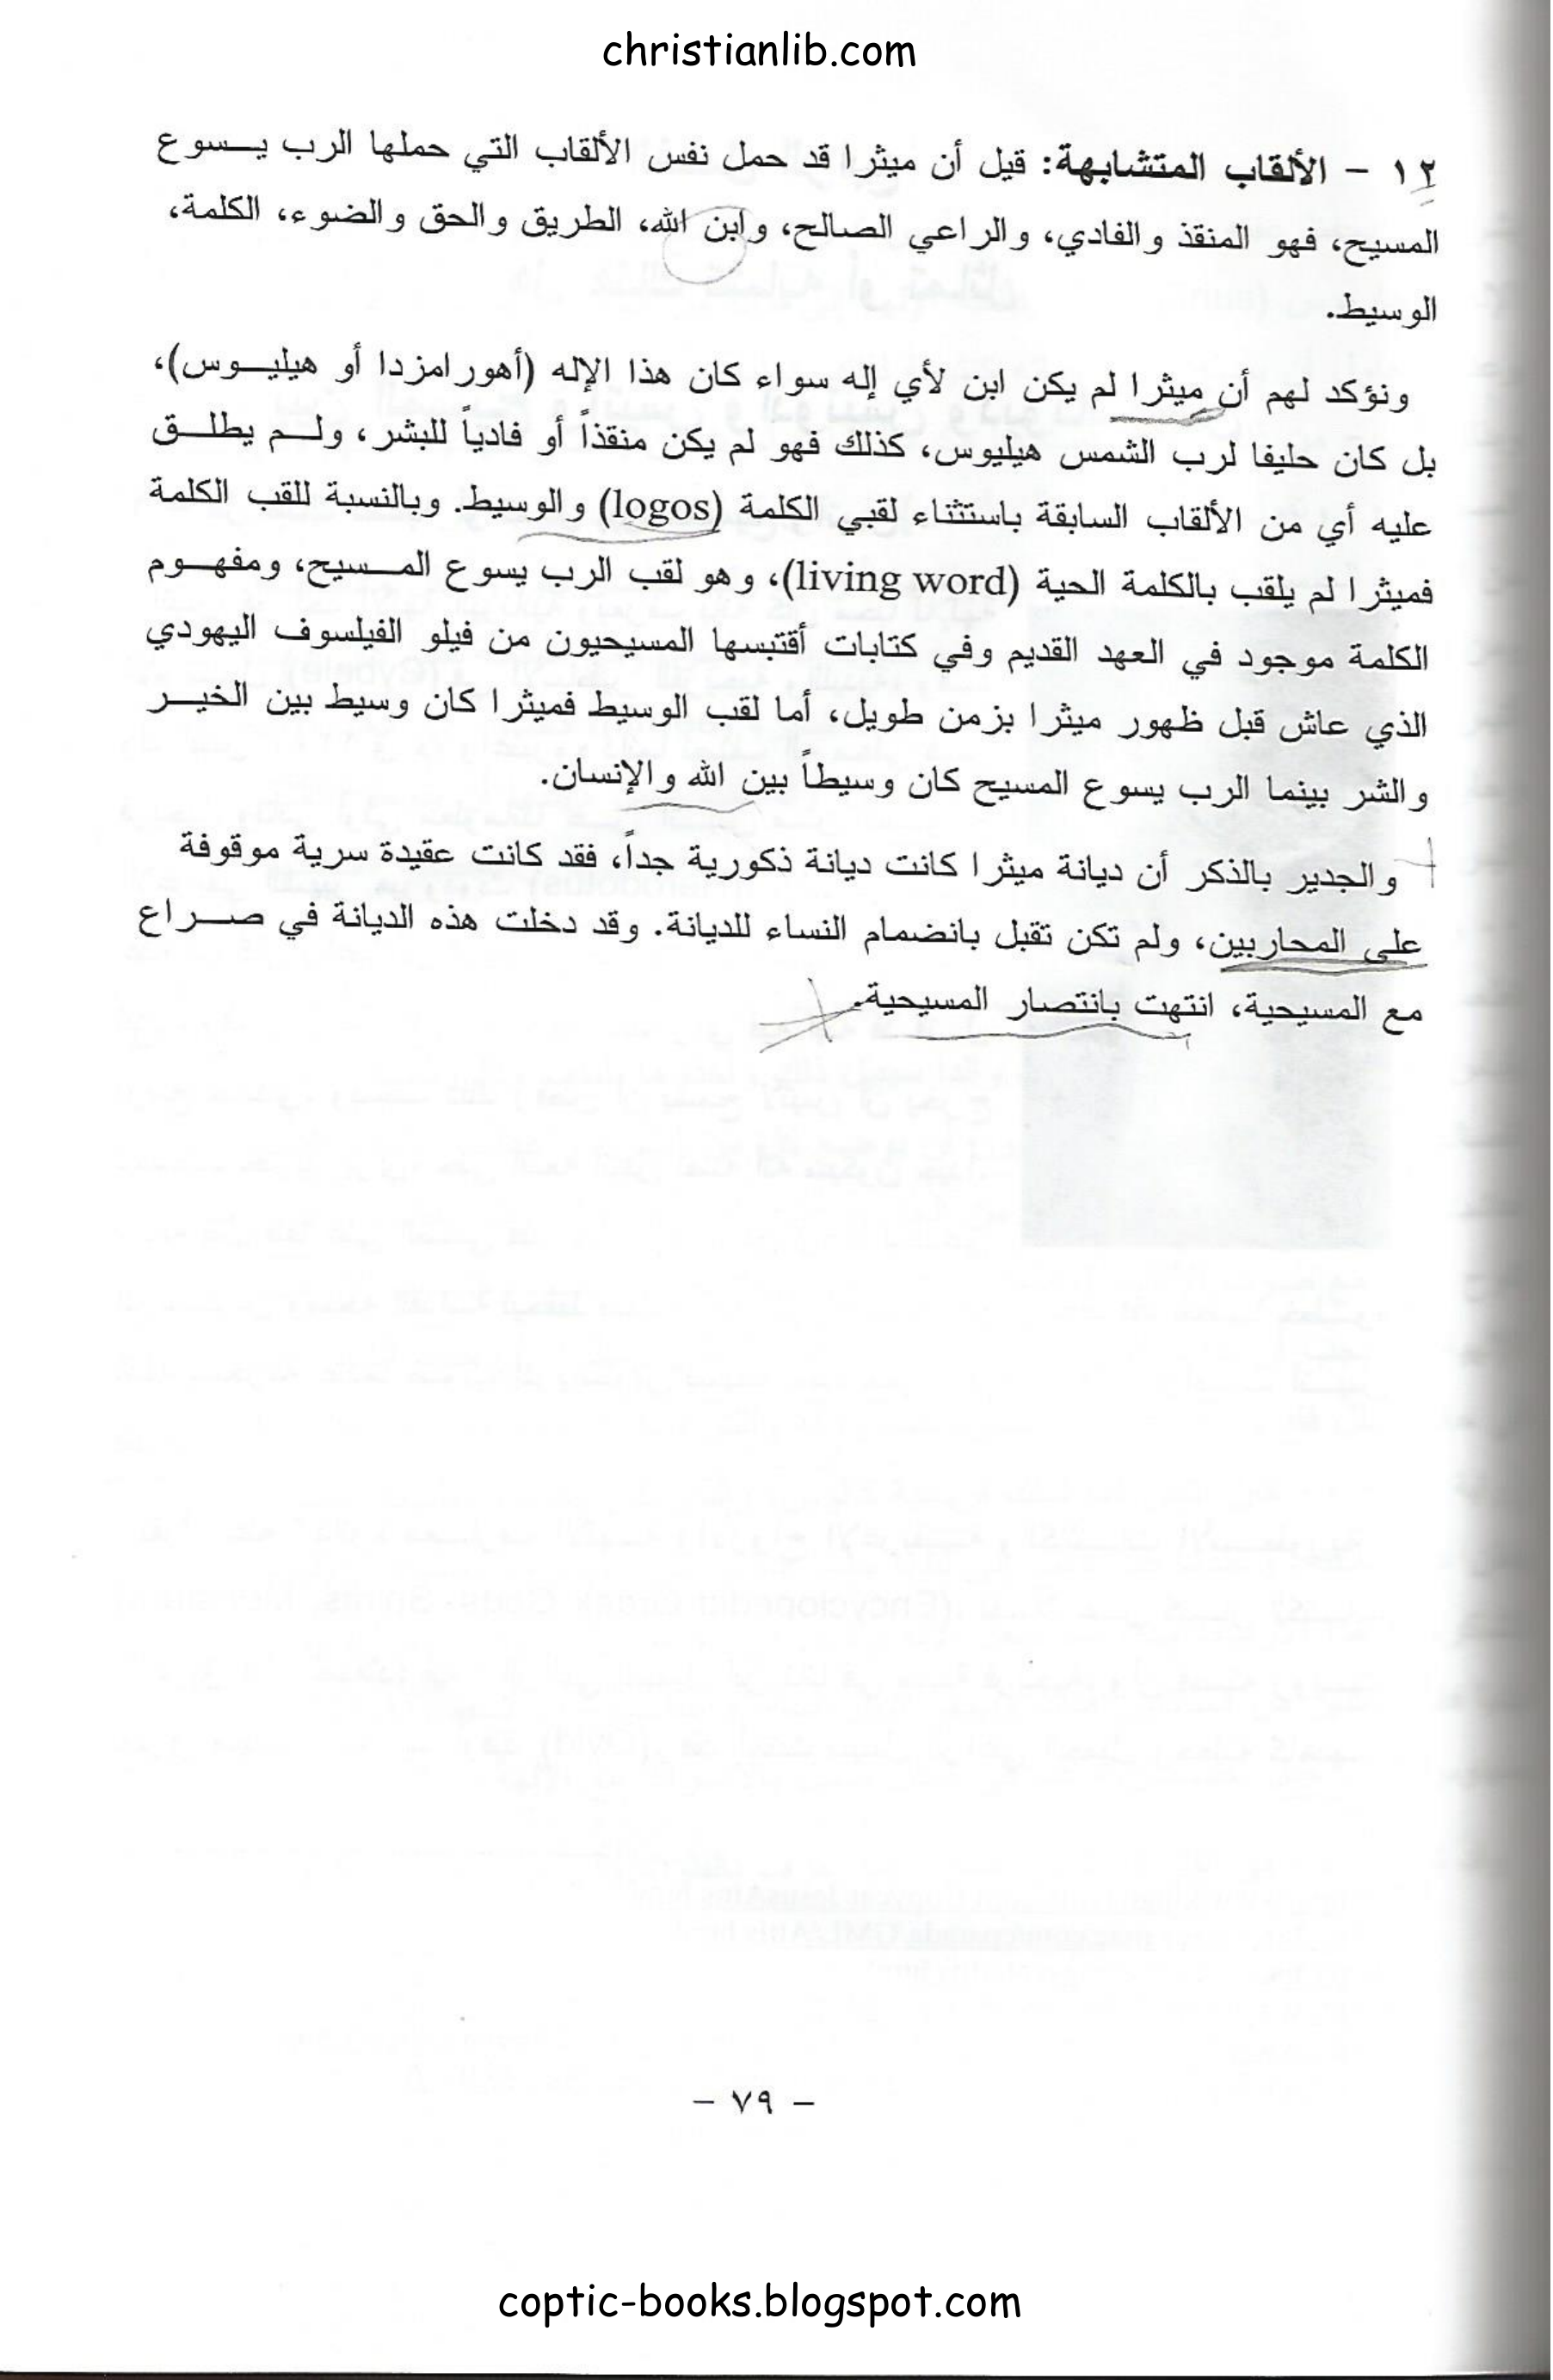 christianlib.com
١٢ - الألقاب المتشابهة: قيل أن ميثرا قد حمل نفس الألقاب التي حملها الرب يسوع
المسيح، فهو المنقذ والفادي، والراعي الصالح، وابن الله، الطريق والحق والضوء، الكلمة،
الوسيط.
ونؤكد لهم أن ميثرا لم يكن ابن لأي إله سواء كان هذا الإله (أهورامزدا أو هيليوس)،
بل كان حليفا لرب الشمس هيليوس، كذلك فهو لم يكن منقذاً أو فادياً للبشر، ولم يطلق
عليه أي من الألقاب السابقة باستثناء لقبي الكلمة (logos) والوسيط. وبالنسبة للقب الكلمة
فميثرا لم يلقب بالكلمة الحية (living word)، وهو لقب الرب يسوع المسيح، ومفهوم
الكلمة موجود في العهد القديم وفي كتابات أقتبسها المسيحيون من فيلو الفيلسوف اليهودي
الذي عاش قبل ظهور ميثرا بزمن طويل، أما لقب الوسيط فميثرا كان وسيط بين الخير
والشر بينما الرب يسوع المسيح كان وسيطاً بين الله والإنسان.
والجدير بالذكر أن ديانة ميثرا كانت ديانة ذكورية جداً، فقد كانت عقيدة سرية موقوفة
على المحاربين، ولم تكن تقبل بانضمام النساء للديانة. وقد دخلت هذه الديانة في صراع
مع المسيحية، انتهت بانتصار المسيحية.
- ٧٩ -
coptic-books.blogspot.com